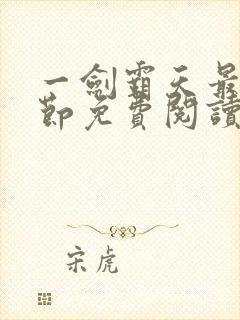 一劍霸天最
節免費閱讀
宋虎